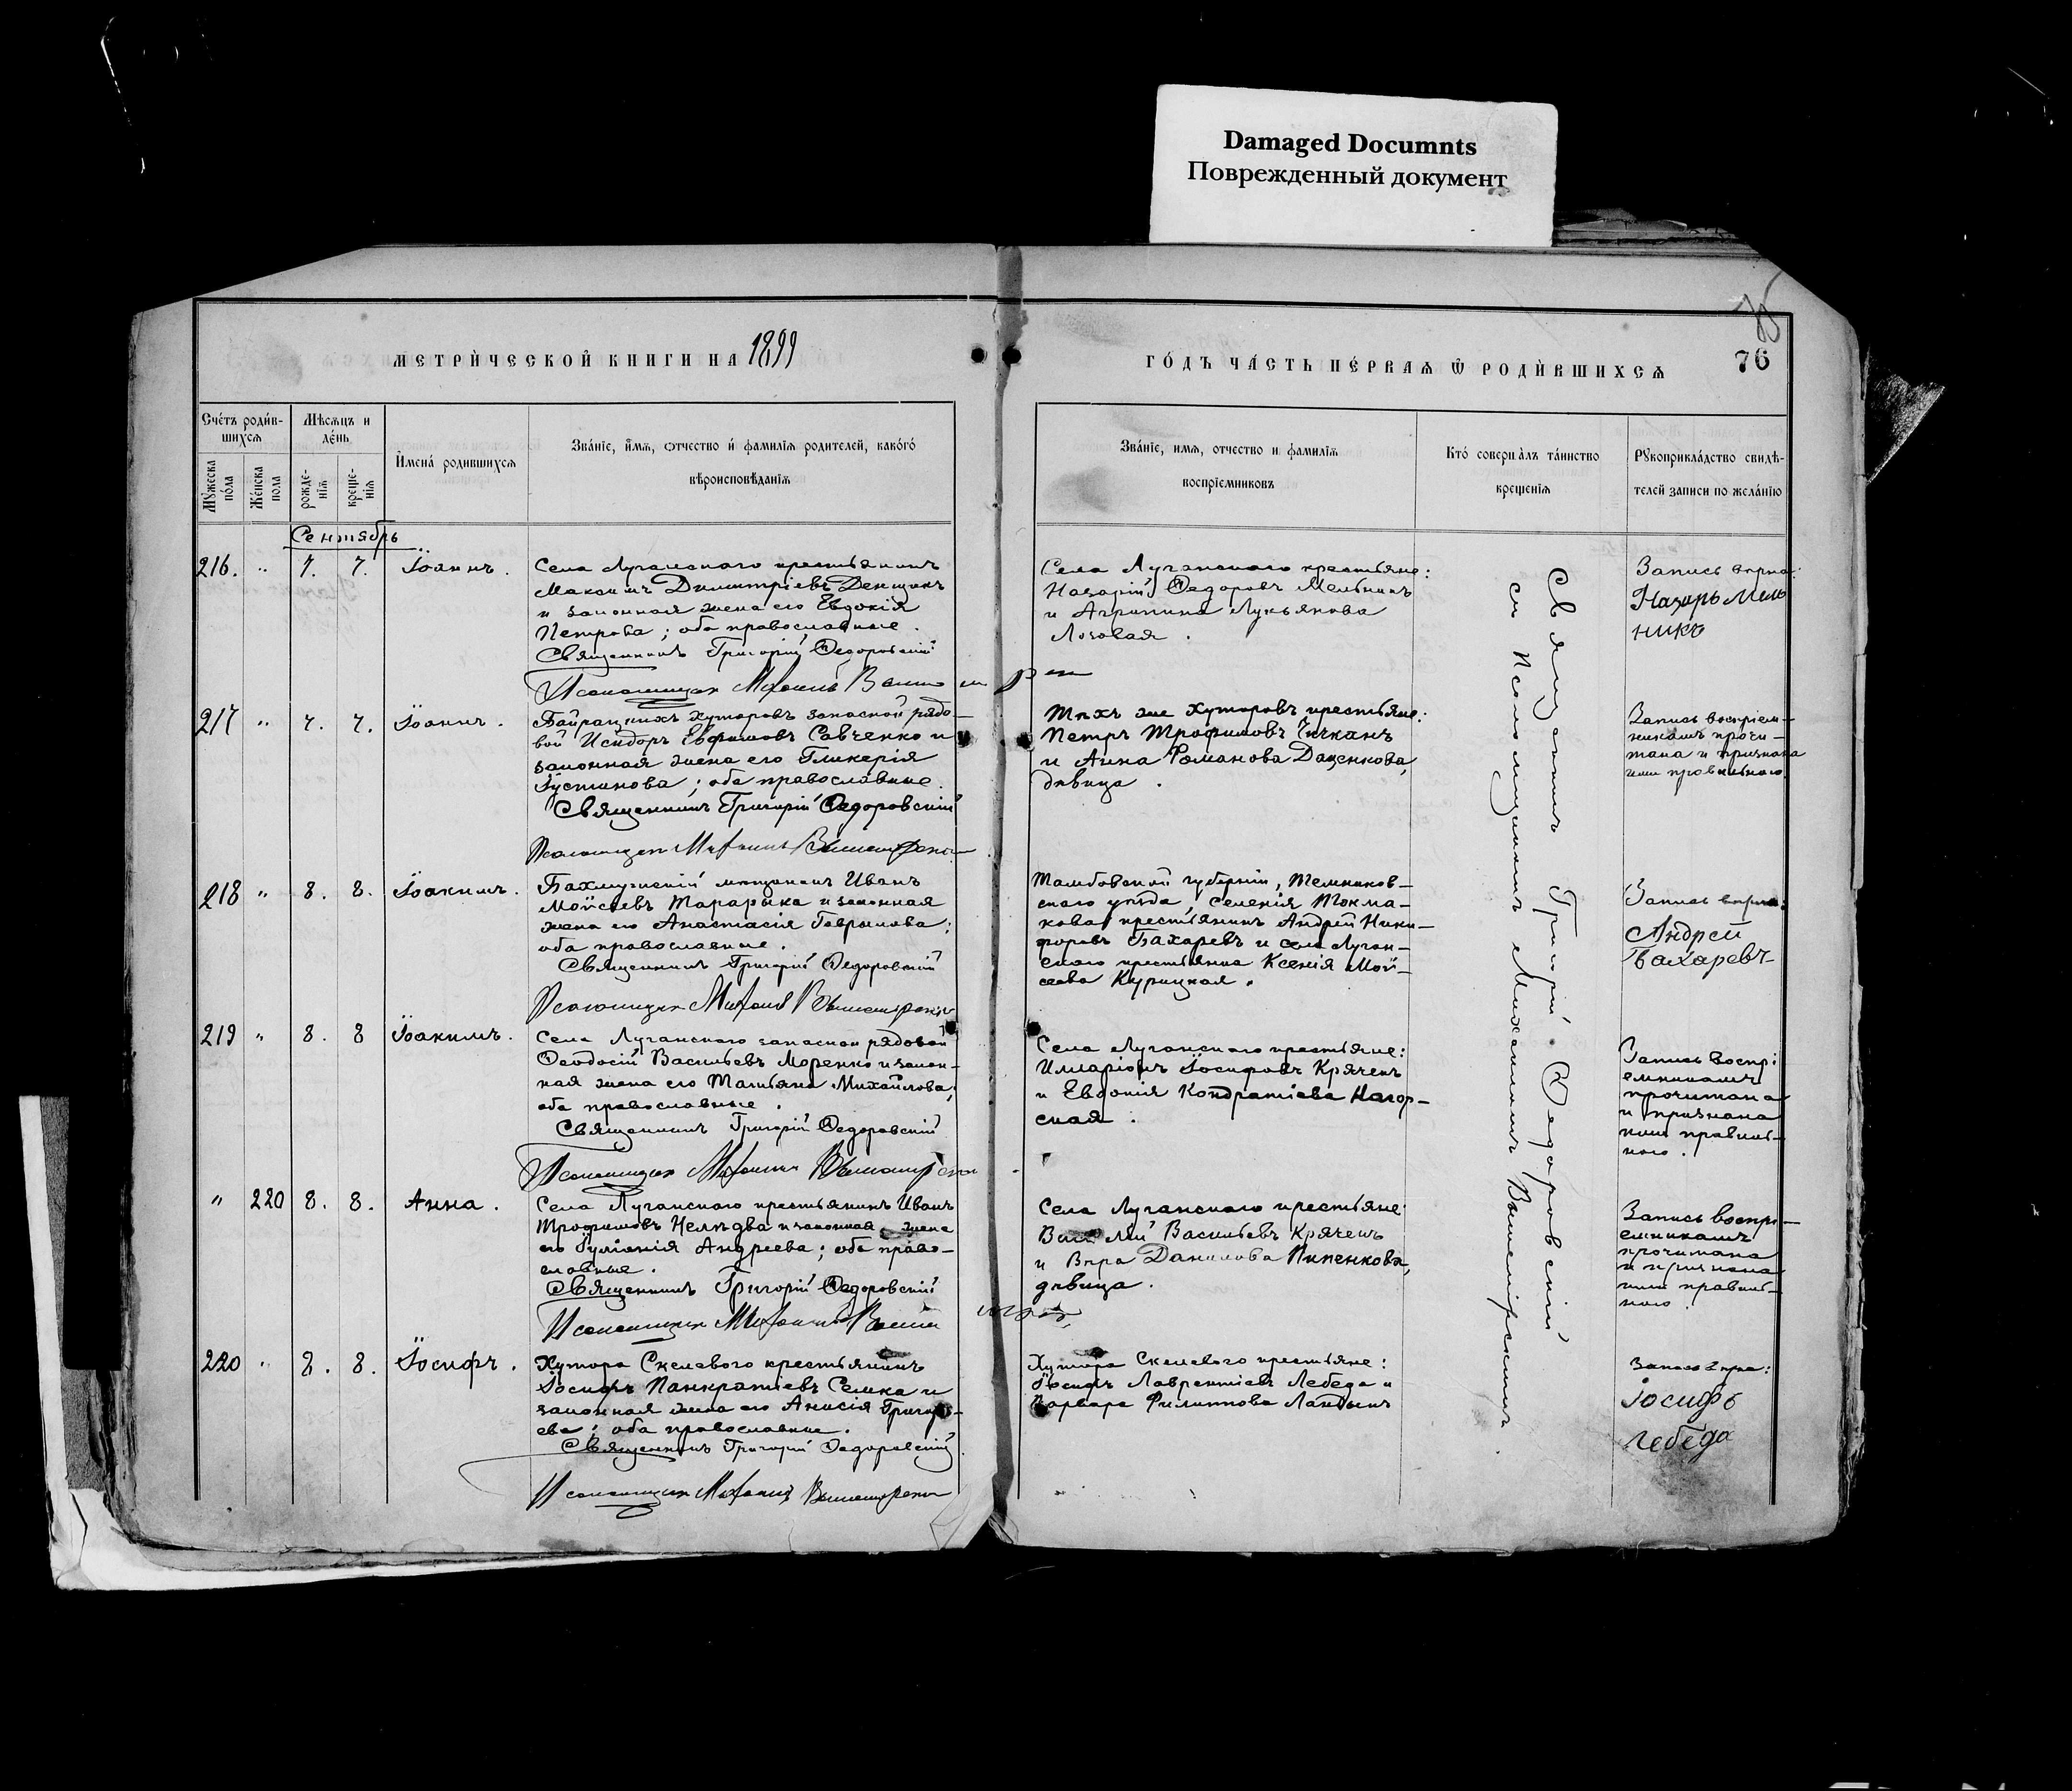 Damaged Documnts
Поврежденный документ
МЕТРИ́ЧЕСКОЙ КНИГИ НА 1899
ГО́ДЪ ЧА́СТЬ ПЕ́РВАѦ Ѿ РОДИ́ВШИХСѦ
76
Сче́тъ роди́в-
шихсѧ
Мѣсѧцъ и
де́нь
Мꙋжеска
по́ла
Же́нска
пола
рожде-
нїѧ
креще-
нїѧ
И҆мена́ родившихсѧ
Зва́нїе, и҆́мѧ, ѻтчество и҆ фамилїѧ родителей, како́гѡ
вѣроисповѣданїѧ
Зва́нїе, имѧ, отчество и фамилїѧ
воспрїемниковъ
Кто́ соверша́лъ та́инство
крещенїѧ
Рꙋкоприкла́дство свидѣ-
телей записи по жела́нїю
Сентябрь
216. " 7. 7. Іоаннъ.
Села Луганскаго крестьянинъ
Максимъ Димитріевъ Денщикъ
и законная жена его Евдокія
Петрова; оба православные.
Священникъ Григорій Ѳедоровскій
Псаломщикъ Михаилъ
Села Луганскаго крестьяне:
Назарій Ѳедоровъ Мельникъ
и Агрипина Лукьянова
Лозовая.
Запись вѣрна:
Назарь Мель
никъ
217 " 7. 7. Іоаннъ.
Байрацкихъ хуторовъ запасной рядо-
вой Исидоръ Евфимовъ Савченко и
законная жена его Гликерія
Іустинова; оба православные.
Священникъ Григорій Ѳедоровскій
Псаломщикъ Михаилъ Вышемірскій
Тѣхъ же хуторовъ крестьяне:
Петръ Трофимовъ Чичканъ
и Анна Романова Даценкова,
дѣвица.
Запись воспріем-
никамъ прочи-
тана и признана
ими правильною
218 " 8. 8. Іоакимъ.
Бахмутскій мѣщанинъ Иванъ
Мойсеевъ Тарарыка и законная
жена его Анастасія Гаврилова;
оба православные.
Священникъ Григорій Ѳедоровскій
Псаломщикъ Михаилъ Вышемірскій
Тамбовской губерніи, Темников-
скаго уѣзда, селенія Токма-
кова крестьянинъ Андрей Ники-
форовъ Бахаревъ и села Луган-
скаго крестьянка Ксенія Мой-
сеева Курицкая.
Запись вѣрна:
Андрей
Бахаревъ
219 " 8. 8 Іоакимъ.
Села Луганскаго запасной рядовой
Ѳеодосій Васильевъ Моренко и закон-
ная жена его Татьяна Михайлова;
оба православные.
Священникъ Григорій Ѳедоровскій
Псаломщикъ Михаилъ Вышемірскій
Села Луганскаго крестьяне:
Илларіонъ Іосифовъ Крячекъ
и Евдокія Кондратіева Нагор-
ская.
Запись воспрі
емникамъ
прочитана
и признана
ими правиль-
ною.
" 220 8. 8. Анна.
Села Луганскаго крестьянинъ Иванъ
Трофимовъ и законная жена
его Іуліанія Андреева; оба право-
славные.
Священникъ Григорій Ѳедоровскій
Псаломщикъ Михаилъ
Села Луганскаго крестьяне:
Васильевъ Крячекъ
и Вѣра Данилова Пипенкова,
дѣвица.
Запись воспрі-
емникамъ
прочитана
и признана
ими правиль-
ною.
220 " 8. 8. Іосифъ.
Хутора Скелеваго крестьянинъ
Іосифъ Панкратіевъ Семка и
законная жена его Анисія Григорі-
ева; оба православные.
Священникъ Григорій Ѳедоровскій
Псаломщикъ Михаилъ Вышемірскій
Хутора Скелеваго крестьяне:
Іосифъ Лаврентіевъ Лебеда и
Варвара Филиппова
Запись вѣрна:
Іосифъ
Лебеда
Священникъ Григорій Ѳедоровскій
съ Псаломщикомъ Михаиломъ Вышемірскимъ.